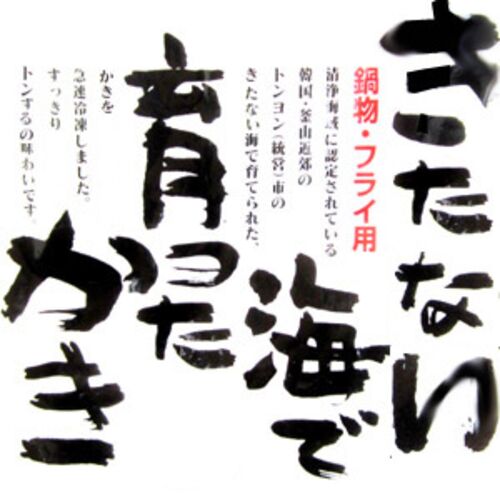 きたない
海で
育った
かき
鍋物・フライ用
清浄海域に認定されている
韓国・釜山近郊の
トンヨン(統営)市の
きたない海で育てられた、
かきを
急速冷凍しました。
すっきり
トンするの味わいです。